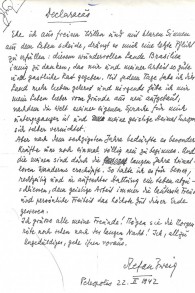 Declaração
Ehe ich aus freiem Willen und mit klaren Sinnen
aus dem Leben scheide, drängt es mich eine letzte Pflicht
zu erfüllen: diesem wundervollen Lande Brasilien
innig zu danken, das mir und meiner Arbeit so gute
und gastliche Rast gegeben. Mit jedem Tage habe ich dies
Land mehr lieben gelernt und nirgends hätte ich mir
mein Leben lieber vom Grunde aus neu aufgebaut,
nachdem die Welt meiner eigenen Sprache für mich
untergegangen ist und meine geistige Heimat Europa
sich selber vernichtet.
Aber nach dem sechzigsten Jahre bedürfte es besonderer
Kräfte um noch einmal völlig neu zu beginnen. Und
die meinen sind durch die langen Jahre heimat-
losen Wanderns erschöpft. So halte ich es für besser,
rechtzeitig und in aufrechter Haltung ein Leben abzu-
schliessen, dem geistige Arbeit immer die lauterste Freude
und persönliche Freiheit das höchste Gut dieser Erde
gewesen.
Ich grüsse alle meine Freunde! Mögen sie die Morgen-
röte noch sehen nach der langen Nacht! Ich, allzu
Ungeduldiger, gehe ihnen voraus.
Stefan Zweig
Petropolis 22. II 1942